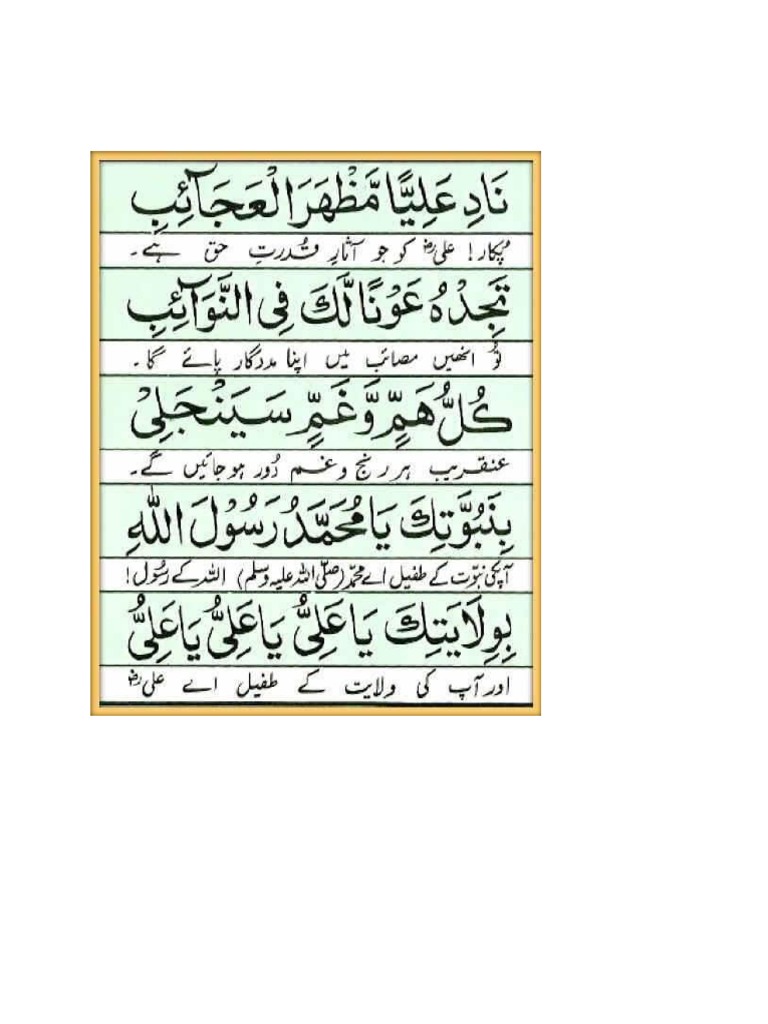 نَادِ عَلِيًّا مَّظْهَرَ الْعَجَآئِبِ
پُکار! علیؓ کو جو آثارِ قُدرتِ حق ہے۔
تَجِدْهُ عَوْنًا لَّكَ فِی النَّوَآئِبِ
تُو انھیں مصائب میں اپنا مددگار پائے گا۔
كُلُّ هَمٍّ وَّغَمٍّ سَيَنْجَلِیْ
عنقریب ہر رنج و غم دُور ہو جائیں گے۔
بِنَبُوَّتِكَ يَا مُحَمَّدُ رَسُوْلَ اللّٰهِ
آپکی نبوّت کے طفیل اے محمّد (صلّی اللہ علیہ وسلم) اللہ کے رسُول!
بِوِلَايَتِكَ يَا عَلِیُّ يَا عَلِیُّ يَا عَلِیُّ
اور آپ کی ولایت کے طفیل اے علیؓ